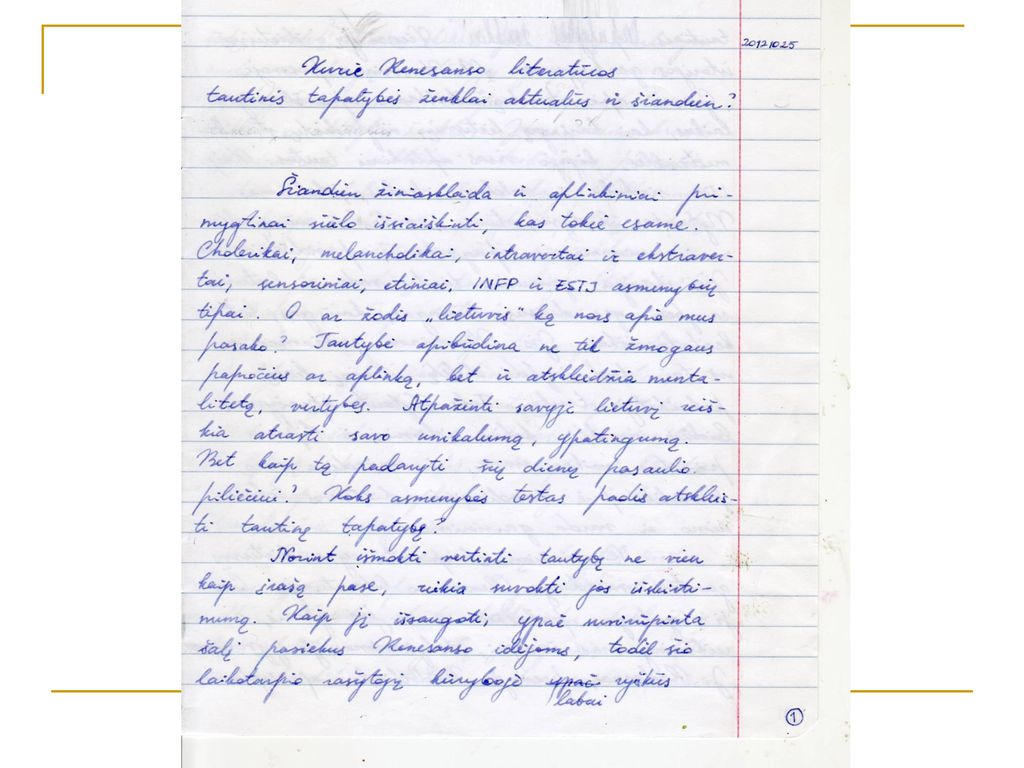 20121025
Kurie Renesanso literatūros
tautinės tapatybės ženklai aktualūs ir šiandien?
Šiandien žiniasklaida ir aplinkiniai pri-
mygtinai siūlo išsiaiškinti, kas tokie esame.
Cholerikai, melancholikai, intravertai ir ekstraver-
tai, sensoriniai, etiniai, INFP ir ESTJ asmenybių
tipai. O ar žodis „lietuvis“ ką nors apie mus
pasako? Tautybė apibūdina ne tik žmogaus
papročius ar aplinką, bet ir atskleidžia menta-
litetą, vertybes. Atpažinti savyje lietuvį reiš-
kia atrasti savo unikalumą, ypatingumą.
Bet kaip tą padaryti šių dienų pasaulio
piliečiui? Koks asmenybės testas padės atskleis-
ti tautinę tapatybę?
Norint išmokti vertinti tautybę ne vien
kaip įrašą pase, reikia suvokti jos išskirti-
numą. Kaip jį išsaugoti, ypač susirūpinta
šalį pasiekus Renesanso idėjoms, todėl šio
laikotarpio rašytojų kūryboje ypač ryškūs
labai
1